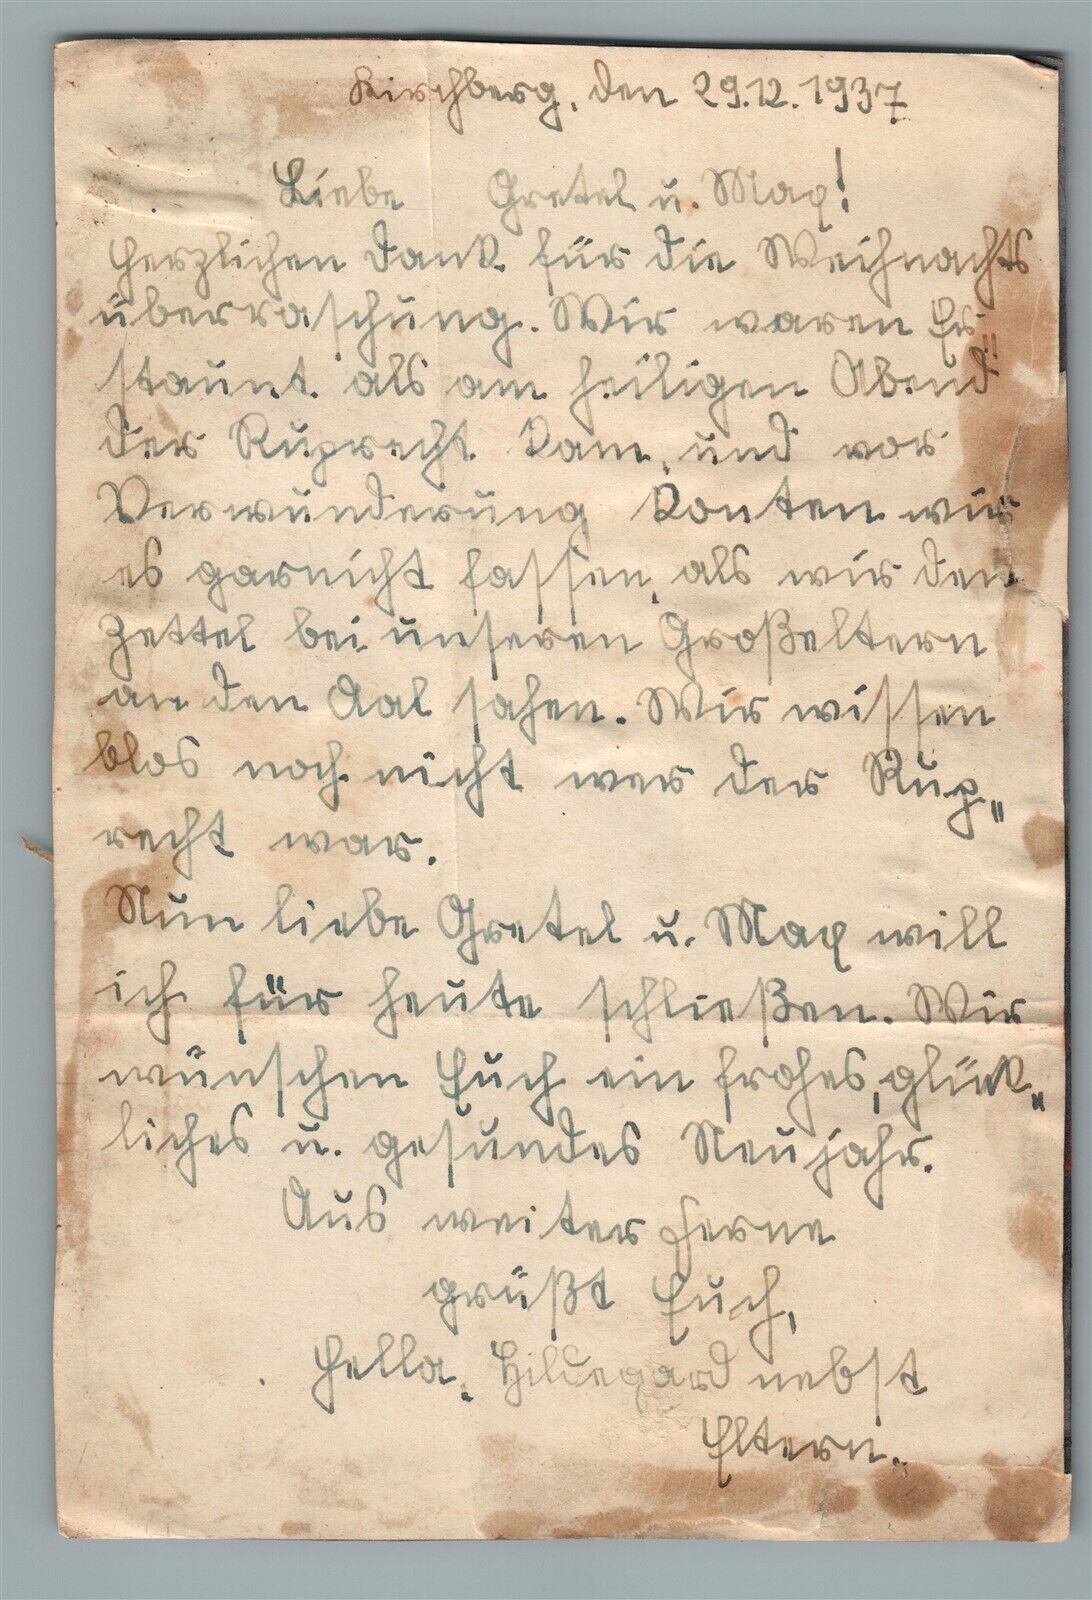 Kirchberg, den 29.12.1937
Liebe Gretel u. Max!
Herzlichen Dank für die Weihnachts
überraschung. Wir waren Er„
staunt als am heiligen Abend
der Ruprecht kam, und vor
Verwunderung konten wir
es garnicht fassen, als wir den
Zettel bei unseren Großeltern
an den Aal sahen. Wir wissen
blos noch nicht wer der Rup„
recht war.
Nun liebe Gretel u. Max will
ich für heute schließen. Wir
wünschen Euch ein frohes, glük„
liches u. gesundes Neujahr.
Aus weiter Ferne
grüßt Euch,
Hella, Hildegard nebst
Eltern.